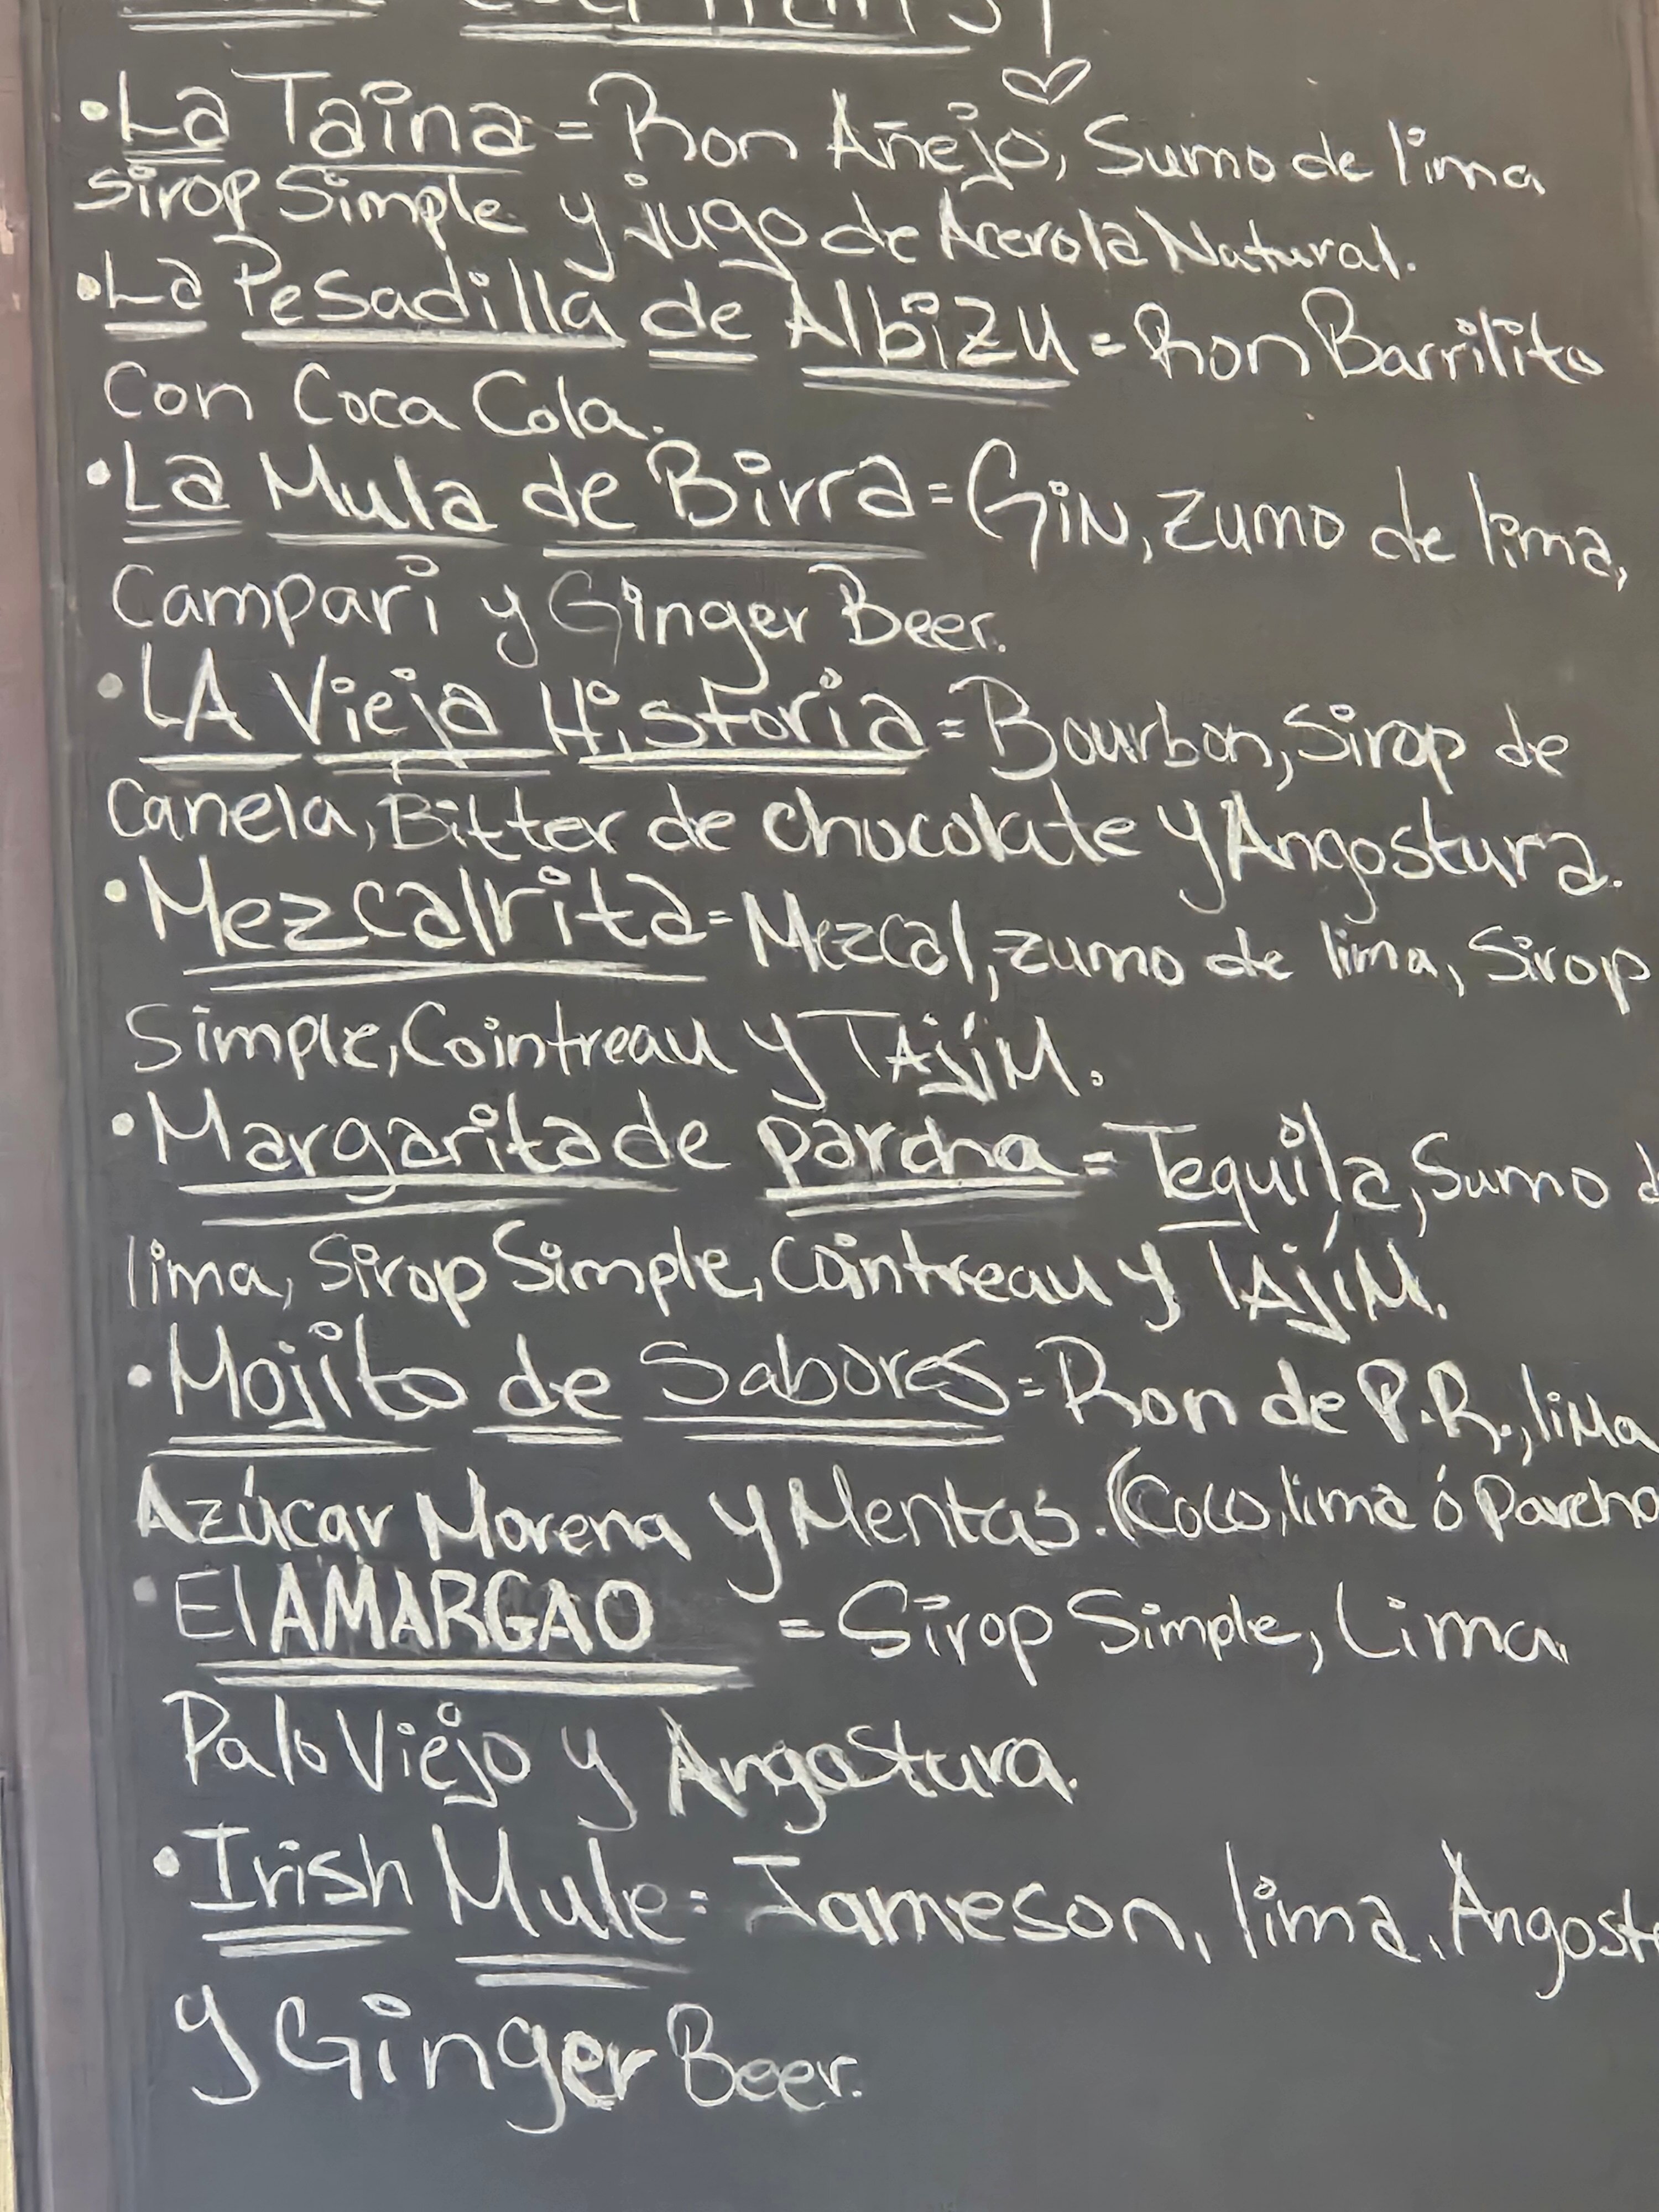 •La Taina = Ron Añejo, Sumo de lima
sirop Simple y jugo de Acerola Natural.
•La Pesadilla de Albizu = Ron Barrilito
Con Coca Cola.
•La Mula de Birra = Gin, zumo de lima,
Campari y Ginger Beer.
•LA Vieja Historia = Bourbon, Sirop de
Canela, Bitter de chocolate y Angostura.
•Mezcalrita = Mezcal, zumo de lima, Sirop
Simple, Cointreau y TAjíM.
•Margarita de parcha = Tequila, Sumo d
lima, Sirop Simple, Cointreau y TAjíM.
•Mojito de Sabores = Ron de P.R., liMa
Azúcar Morena y Mentas. (Coco, lima ó Parcha
•El AMARGAO = Sirop Simple, Lima
Palo Viejo y Angostura.
•Irish Mule = Jameson, lima, Angost
y Ginger Beer.